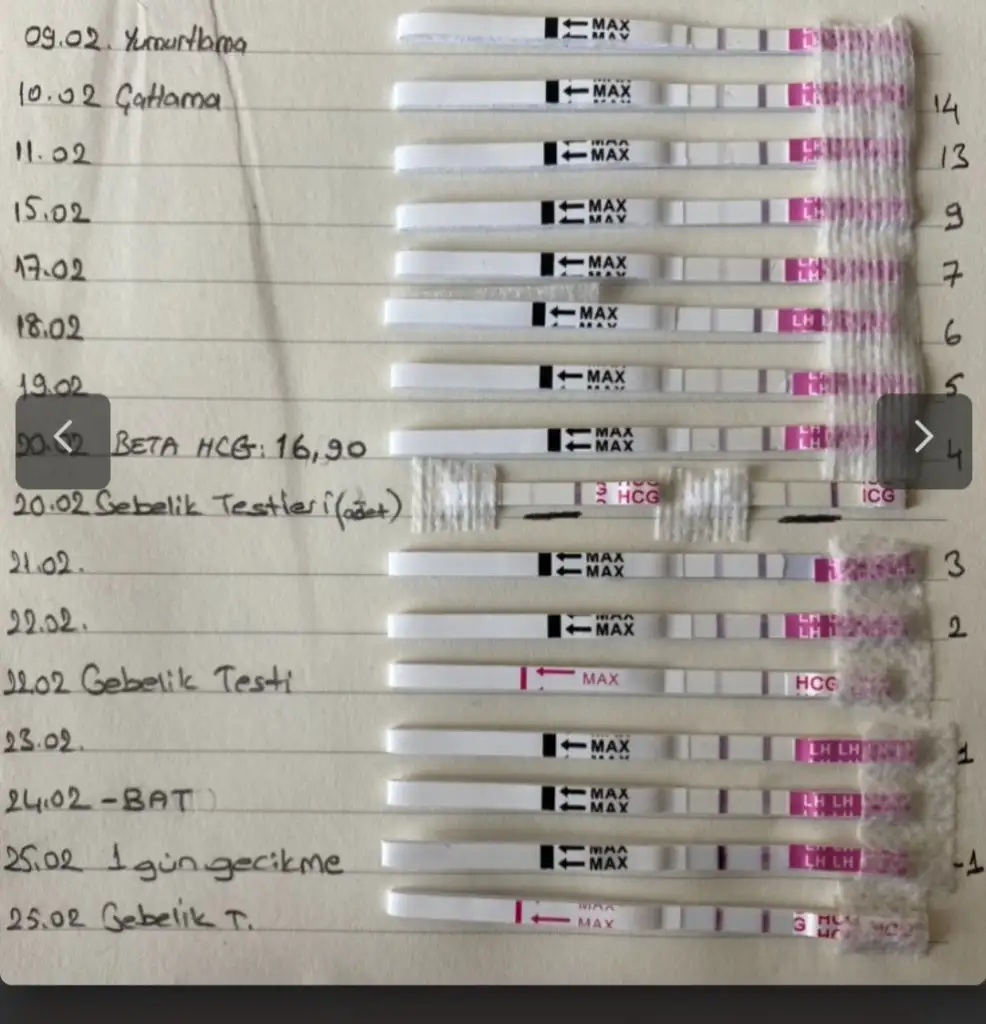 09.02. Yumurtlama MAX MAX
10.02 Çatlama MAX MAX LH 14
11.02 MAX MAX LH 13
15.02 MAX MAX LH 9
17.02 MAX MAX LH LH 7
18.02 MAX MAX LH 6
19.02 MAX MAX LH 5
20.02 BETA HCG: 16,90 MAX MAX LH LH 4
20.02 Gebelik Testleri (özet) HCG HCG ICG
21.02. MAX MAX 3
22.02. MAX MAX LH LH 2
22.02 Gebelik Testi MAX HCG
23.02. MAX MAX LH LH 1
24.02 - BAT MAX MAX LH LH
25.02 1 gün gecikme MAX MAX LH LH -1
25.02 Gebelik T. MAX MAX G HCG HCG